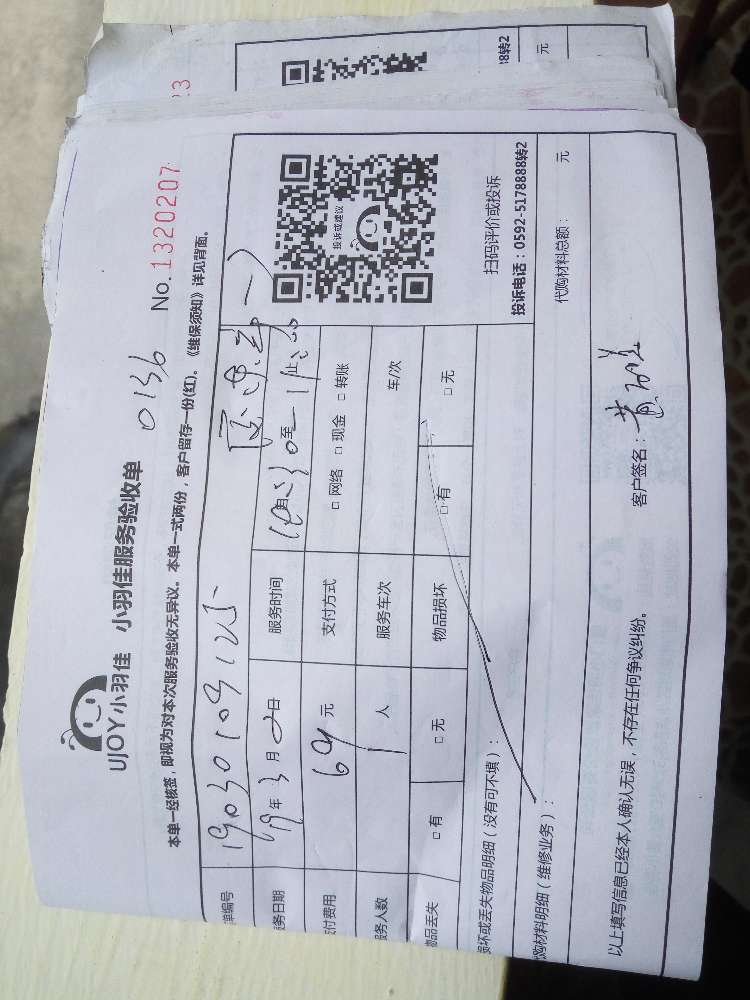 UJOY小羽佳 小羽佳服务验收单 0136 No.1320207
本单一经核签，即视为对本次服务验收无异议。本单一式两份，客户留存一份(红)。《维保须知》详见背面。
单编号 1903010912
服务日期 19年3月2日 服务时间 月 至 止
支付费用 69元 支付方式 □ 网络 □ 现金 □ 转账
服务人数 1人 服务车次 车/次
物品丢失 □ 有 □ 无 物品损坏 □ 有 □ 无
投诉或建议
扫码评价或投诉
投诉电话：0592-5178888转2
损坏或丢失物品明细（没有可不填）：
代购材料明细（维修业务）： 代购材料总额： 元
以上填写信息已经本人确认无误，不存在任何争议纠纷。 客户签名：黄
23
8转2
元